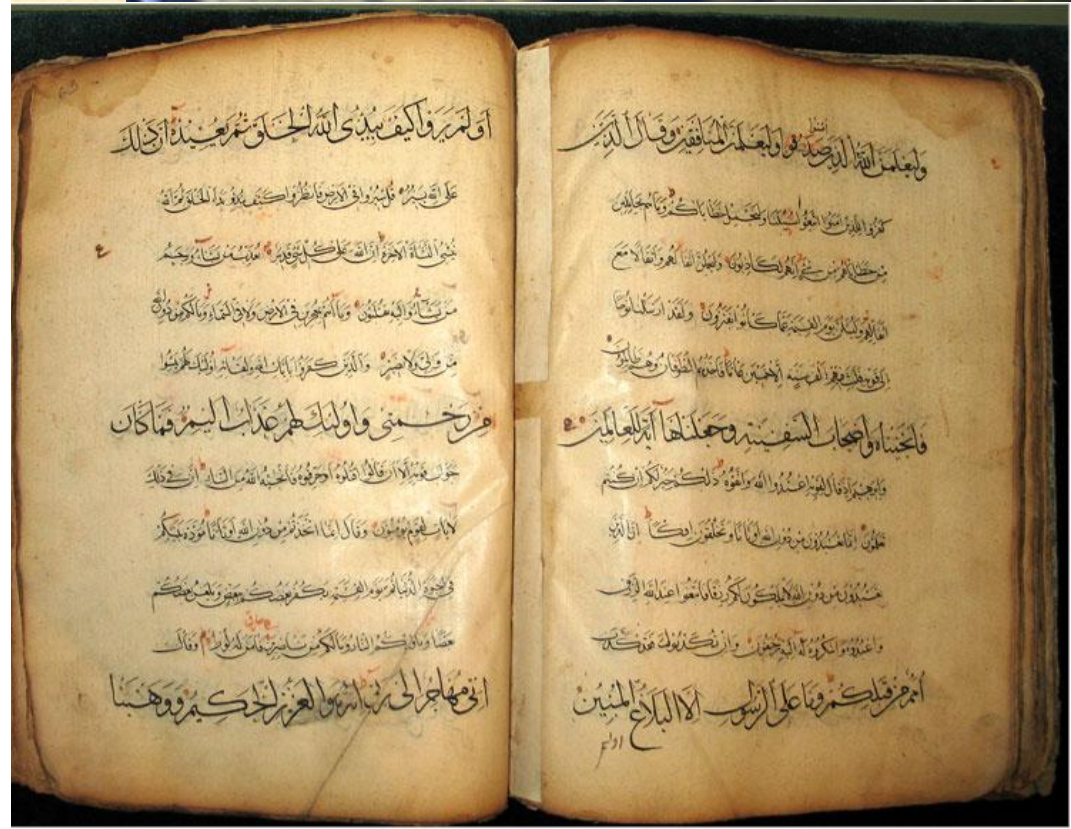 وليعلمن الله الذين صدقوا وليعلمن المنافقين وقال الذين
كفروا للذين امنوا اتبعوا سبيلنا ولنحمل خطاياكم وما هم بحاملين
من خطاياهم من شئ انهم لكاذبون وليحملن اثقالهم واثقالا مع
اثقالهم وليسئلن يوم القيمة عما كانوا يفترون ولقد ارسلنا نوحا
الى قومه فلبث فيهم الف سنة الا خمسين عاما فاخذهم الطوفان وهم ظالمون
فانجيناه واصحاب السفينة وجعلناها آية للعالمين
وابرهيم اذ قال لقومه اعبدوا الله واتقوه ذلكم خير لكم ان كنتم
تعلمون انما تعبدون من دون الله اوثانا وتخلقون افكا ان الذين
تعبدون من دون الله لا يملكون لكم رزقا فابتغوا عند الله الرزق
واعبدوه واشكروا له اليه ترجعون وان تكذبوا فقد كذب
امم من قبلكم وما على الرسول الا البلاغ المبين
اولم
اولم يروا كيف يبدئ الله الخلق ثم يعيده ان ذلك
على الله يسير قل سيروا فى الارض فانظروا كيف بدا الخلق ثم الله
ينشئ النشاة الاخرة ان الله على كل شئ قدير يعذب من يشاء ويرحم
من يشاء واليه تقلبون وما انتم بمعجزين فى الارض ولا فى السماء وما لكم من دون الله
من ولى ولا نصير والذين كفروا بايات الله ولقائه اولئك يئسوا
من رحمتى واولئك لهم عذاب اليم فما كان
جواب قومه الا ان قالوا اقتلوه او حرقوه فانجيه الله من النار ان فى ذلك
لايات لقوم يؤمنون وقال انما اتخذتم من دون الله اوثانا مودة بينكم
فى الحيوة الدنيا ثم يوم القيمة يكفر بعضكم ببعض ويلعن بعضكم
بعضا وماويكم النار وما لكم من ناصرين فامن له لوط وقال
انى مهاجر الى ربى انه هو العزيز الحكيم ووهبنا